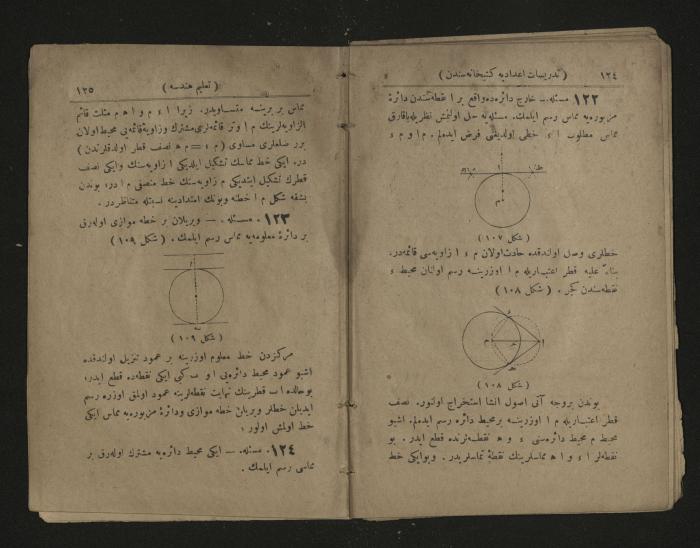 ١٢٤ ( تدريسات اعداديه كتبخانه‌سندن )
١٢٢ مسئله . — خارج دائره‌ده واقع بر ا نقطه‌سندن دائرهٔ
مزبوره‌يه مماس رسم ايلمك . مسئله‌يه حل اولنمش نظريله باقارق
مماس مطلوب ا ء خطى اولديغنى فرض ايده‌لم . م ا و م ء
( شكل ١٠٧ )
خطلرى وصل اولندقده حادث اولان م ء ا زاويه‌سى قائمه‌در .
بناءً عليه قطر اعتباريله م ا اوزرينه رسم اولنان محيط ء
نقطه‌سندن كچر . ( شكل ١٠٨ )
( شكل ١٠٨ )
بوندن بروجه آتى اصول انشا استخراج اولنور . نصف
قطر اعتباريله م ا اوزرينه بر محيط دائره رسم ايده‌لم . اشبو
محيط م محيط دائره‌سنى ء و ه نقطه‌لرنده قطع ايدر . بو
نقطه‌لر ا ء و ا ه مماسلرينك نقطهٔ تماسلريدر . وبو ايكى خط
( تعليم هندسه ) ١٢٥
مماس بر برينه متساويدر . زيرا ا ء م و ا ه م مثلث قائم
الزاويه‌لرينك م ا وتر قائمه‌لرى مشترك وزاويهٔ قائمه‌يى محيط اولان
برر ضلعلرى مساوى ( م ء = م ه نصف قطر اولدقلرندن )
در . ايكى خط مماسك تشكيل ايلديكى ا زاويه‌سنك وايكى نصف
قطرك تشكيل ايتديكى م زاويه‌سنك خط منصفى م ا در . بوندن
بشقه شكل م ا خطنه وبونك امتدادينه نسبتله متناظردر .
١٢٣ . مسئله . — ويريلان بر خطه موازى اوله‌رق
بر دائرهٔ معلومه‌يه مماس رسم ايلمك . ( شكل ١٠٩ )
( شكل ١٠٩ )
مركزدن خط معلوم اوزرينه بر عمود تنزيل اولندقده
اشبو عمود محيط دائره‌يى ا و ب كبى ايكى نقطه‌ده قطع ايدر .
بو حالده ا ب قطرينك نهايت نقطه‌لرينه عمود اولمق اوزره رسم
ايديلن خطلر ويريلان خطه موازى ودائرهٔ مزبوره‌يه مماس ايكى
خط اولمش اولور .
١٢٤ . مسئله . — ايكى محيط دائره‌يه مشترك اوله‌رق بر
مماس رسم ايلمك .